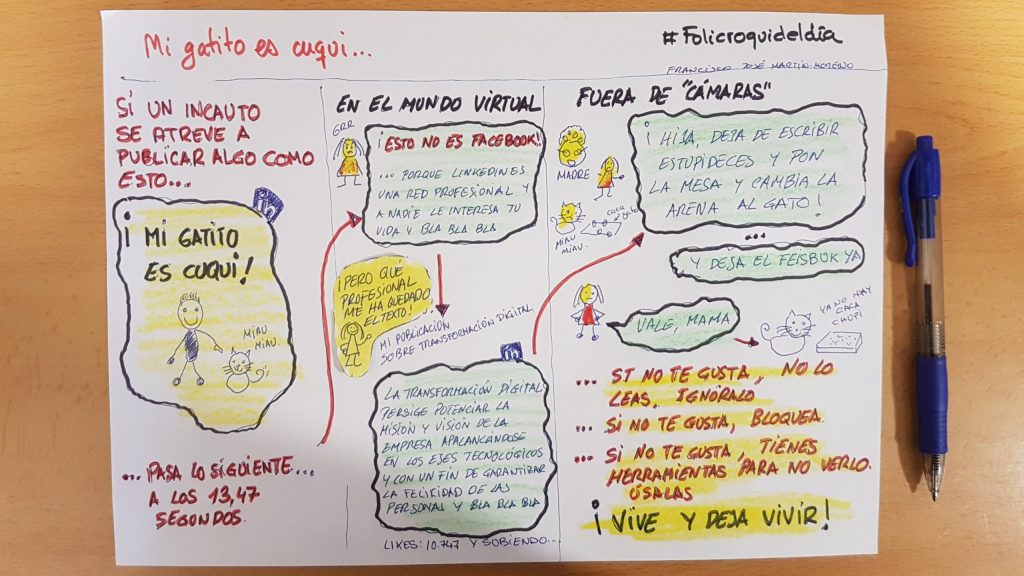 Mi gatito es cuqui...
#Folicroquideldía
FRANCISCO JOSÉ MARTÍN-MORENO
SI UN INCAUTO
SE ATREVE A
PUBLICAR ALGO COMO
ESTO...
in
¡MI GATITO
ES CUQUI!
MIAU
MIAU.
... PASA LO SIGUIENTE...
A LOS 13,47
SEGONDOS.
EN EL MUNDO VIRTUAL
GRR
¡ESTO NO ES FACEBOOK!
... PORQUE LINKEDIN ES
UNA RED PROFESIONAL Y
A NADIE LE INTERESA TU
VIDA Y BLA BLA BLA
¡PERO QUÉ
PROFESIONAL
ME HA QUEDADO
EL TEXTO!
MI PUBLICACIÓN
SOBRE TRANSFORMACIÓN DIGITAL
in
LA TRANSFORMACIÓN DIGITAL
PERSIGE POTENCIAR LA
MISIÓN Y VISIÓN DE LA
EMPRESA APALANCÁNDOSE
EN LOS EJES TECNOLÓGICOS
Y CON UN FIN DE GARANTIZAR
LA FELICIDAD DE LAS
PERSONAS Y BLA BLA BLA
LIKES: 10.747 Y SUBIENDO...
FUERA DE "CÁMARAS"
MADRE
MIAU
MIAU.
CACA
¡HIJA, DEJA DE ESCRIBIR
ESTUPIDECES Y PON
LA MESA Y CAMBIA LA
ARENA AL GATO!
...
Y DEJA EL FEISBUK YA
VALE, MAMA
YA NO HAY
CACA
CHUPI
... SI NO TE GUSTA, NO LO
LEAS. IGNÓRALO
... SI NO TE GUSTA, BLOQUEA.
... SI NO TE GUSTA, TIENES
HERRAMIENTAS PARA NO VERLO.
ÚSALAS
¡VIVE Y DEJA VIVIR!